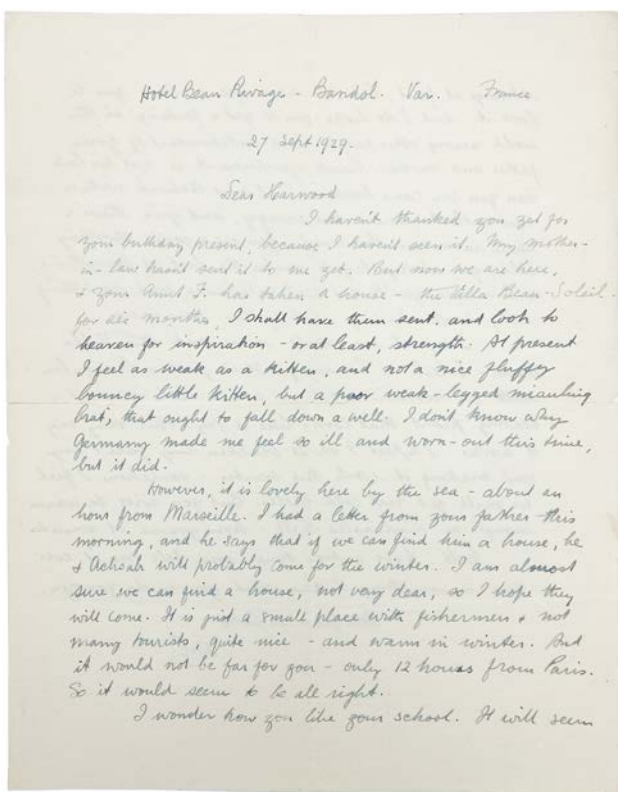 Hotel Beau Rivage - Bandol. Var. France
27 Sept 1929.
Dear Harwood
I haven't thanked you yet for
your birthday present, because I haven't seen it. My mother-
in-law hasn't sent it to me yet. But now we are here,
& your Aunt F. has taken a house - the Villa Beau-Soleil
for six months, I shall have them sent, and look to
heaven for inspiration - or at least, strength. At present
I feel as weak as a kitten, and not a nice fluffy
bouncy little kitten, but a poor weak-legged miauling
brat, that ought to fall down a well. I don't know why
Germany made me feel so ill and worn-out this time,
but it did.
However, it is lovely here by the sea - about an
hour from Marseille. I had a letter from your father this
morning, and he says that if we can find him a house, he
& Achsah will probably come for the winter. I am almost
sure we can find a house, not very dear, so I hope they
will come. It is just a small place with fishermen & not
many tourists, quite nice - and warm in winter. And
it would not be far for you - only 12 hours from Paris.
So it would seem to be all right.
I wonder how you like your school. It will seem